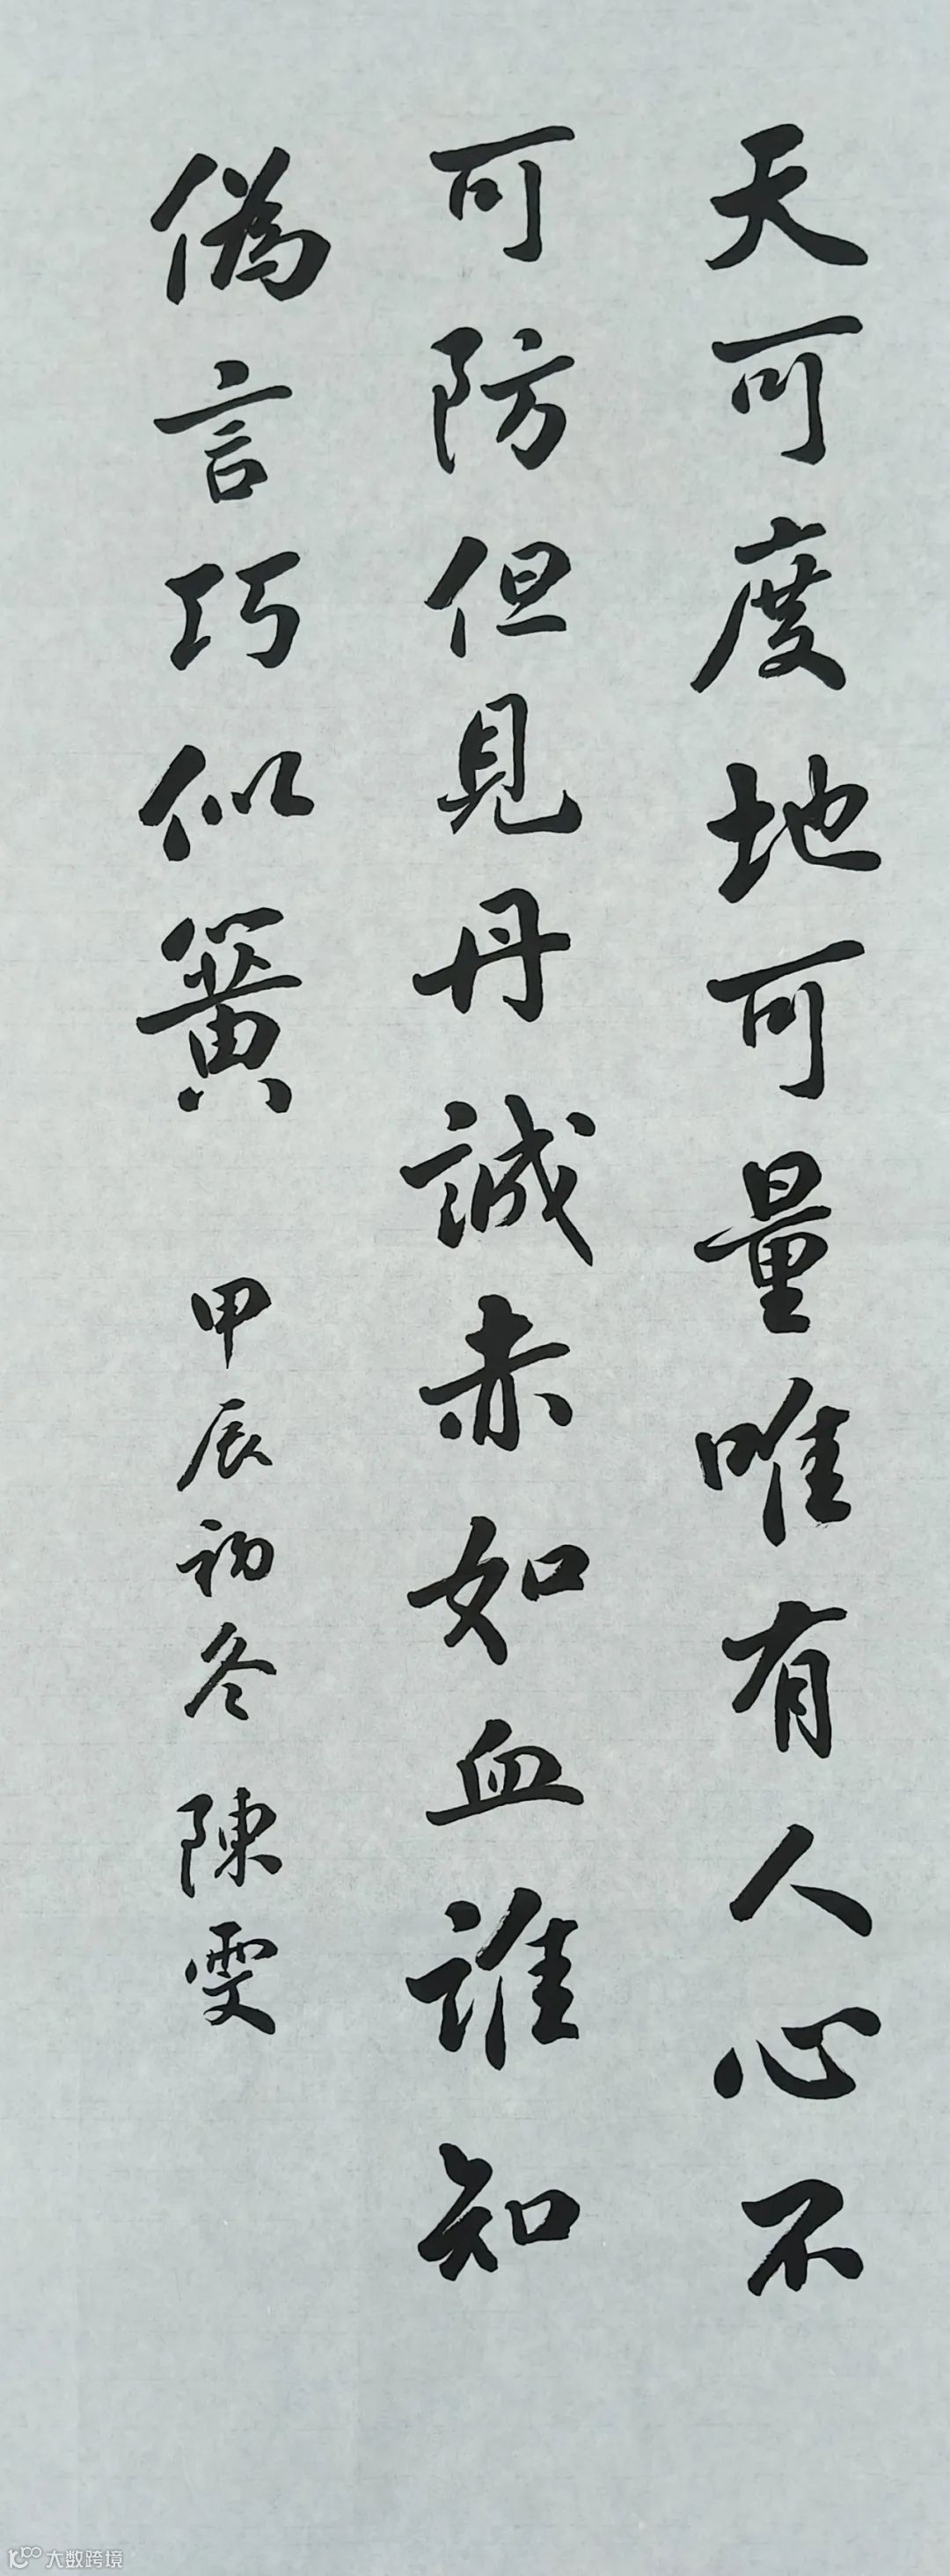 天可度地可量唯有人心不
可防但見丹誠赤如血誰知
偽言巧似簧
甲辰初冬 陳雯
大数跨境